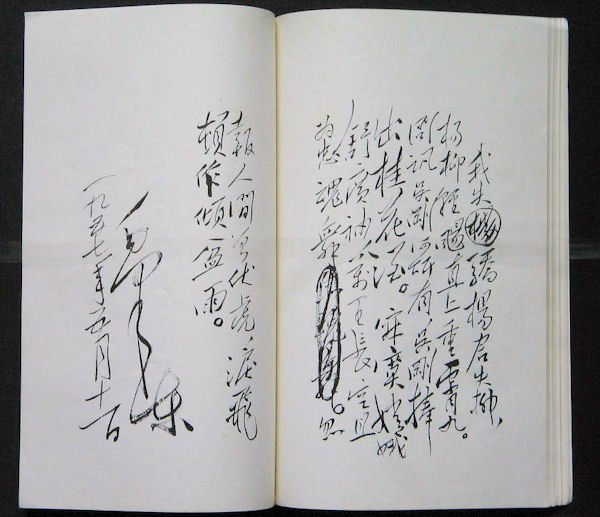 我失驕楊君失柳、
楊柳輕颺直上重霄九。
問訊吳剛何所有吳剛捧
出桂花酒。寂寞嫦娥
舒廣袖萬里長空且
為忠魂舞。忽
報人間曾伏虎、淚飛
頓作傾盆雨。
毛澤東
一九五七年五月十一日